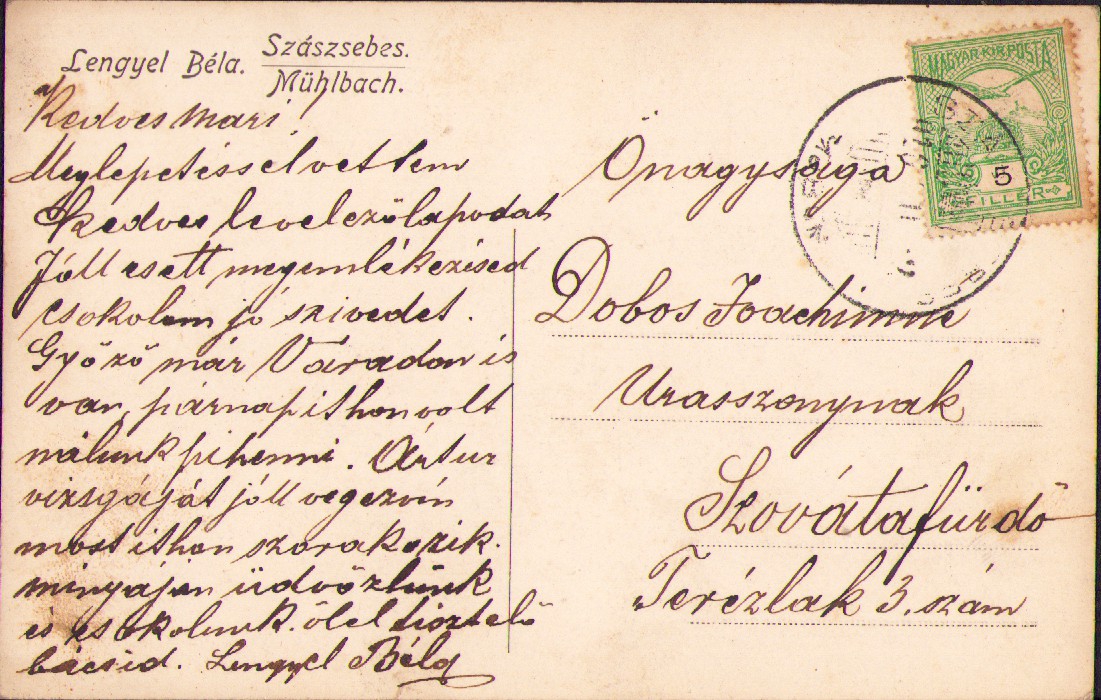 Lengyel Béla. Szászsebes.
Mühlbach.
Kedves Mari!
Meglepetéssel vettem
kedves levelezőlapodat
Jóll esett megemlékezésed
csokolom jó szivedet.
Győző már Váradon is
van, párnap ithon volt
nálunk pihenni. Ártur
vizsgáját jóll vegezvén
most ithon szorakozik.
minyájan üdvözlünk
és csokolunk. ölel tisztelő
bácsid. Lengyel Béla
Őnagysága
Dobos Joachimné
Urasszonynak
Szovátafürdő
Terézlak 3. szám
MAGYAR KIR. POSTA
5
FILLÉR